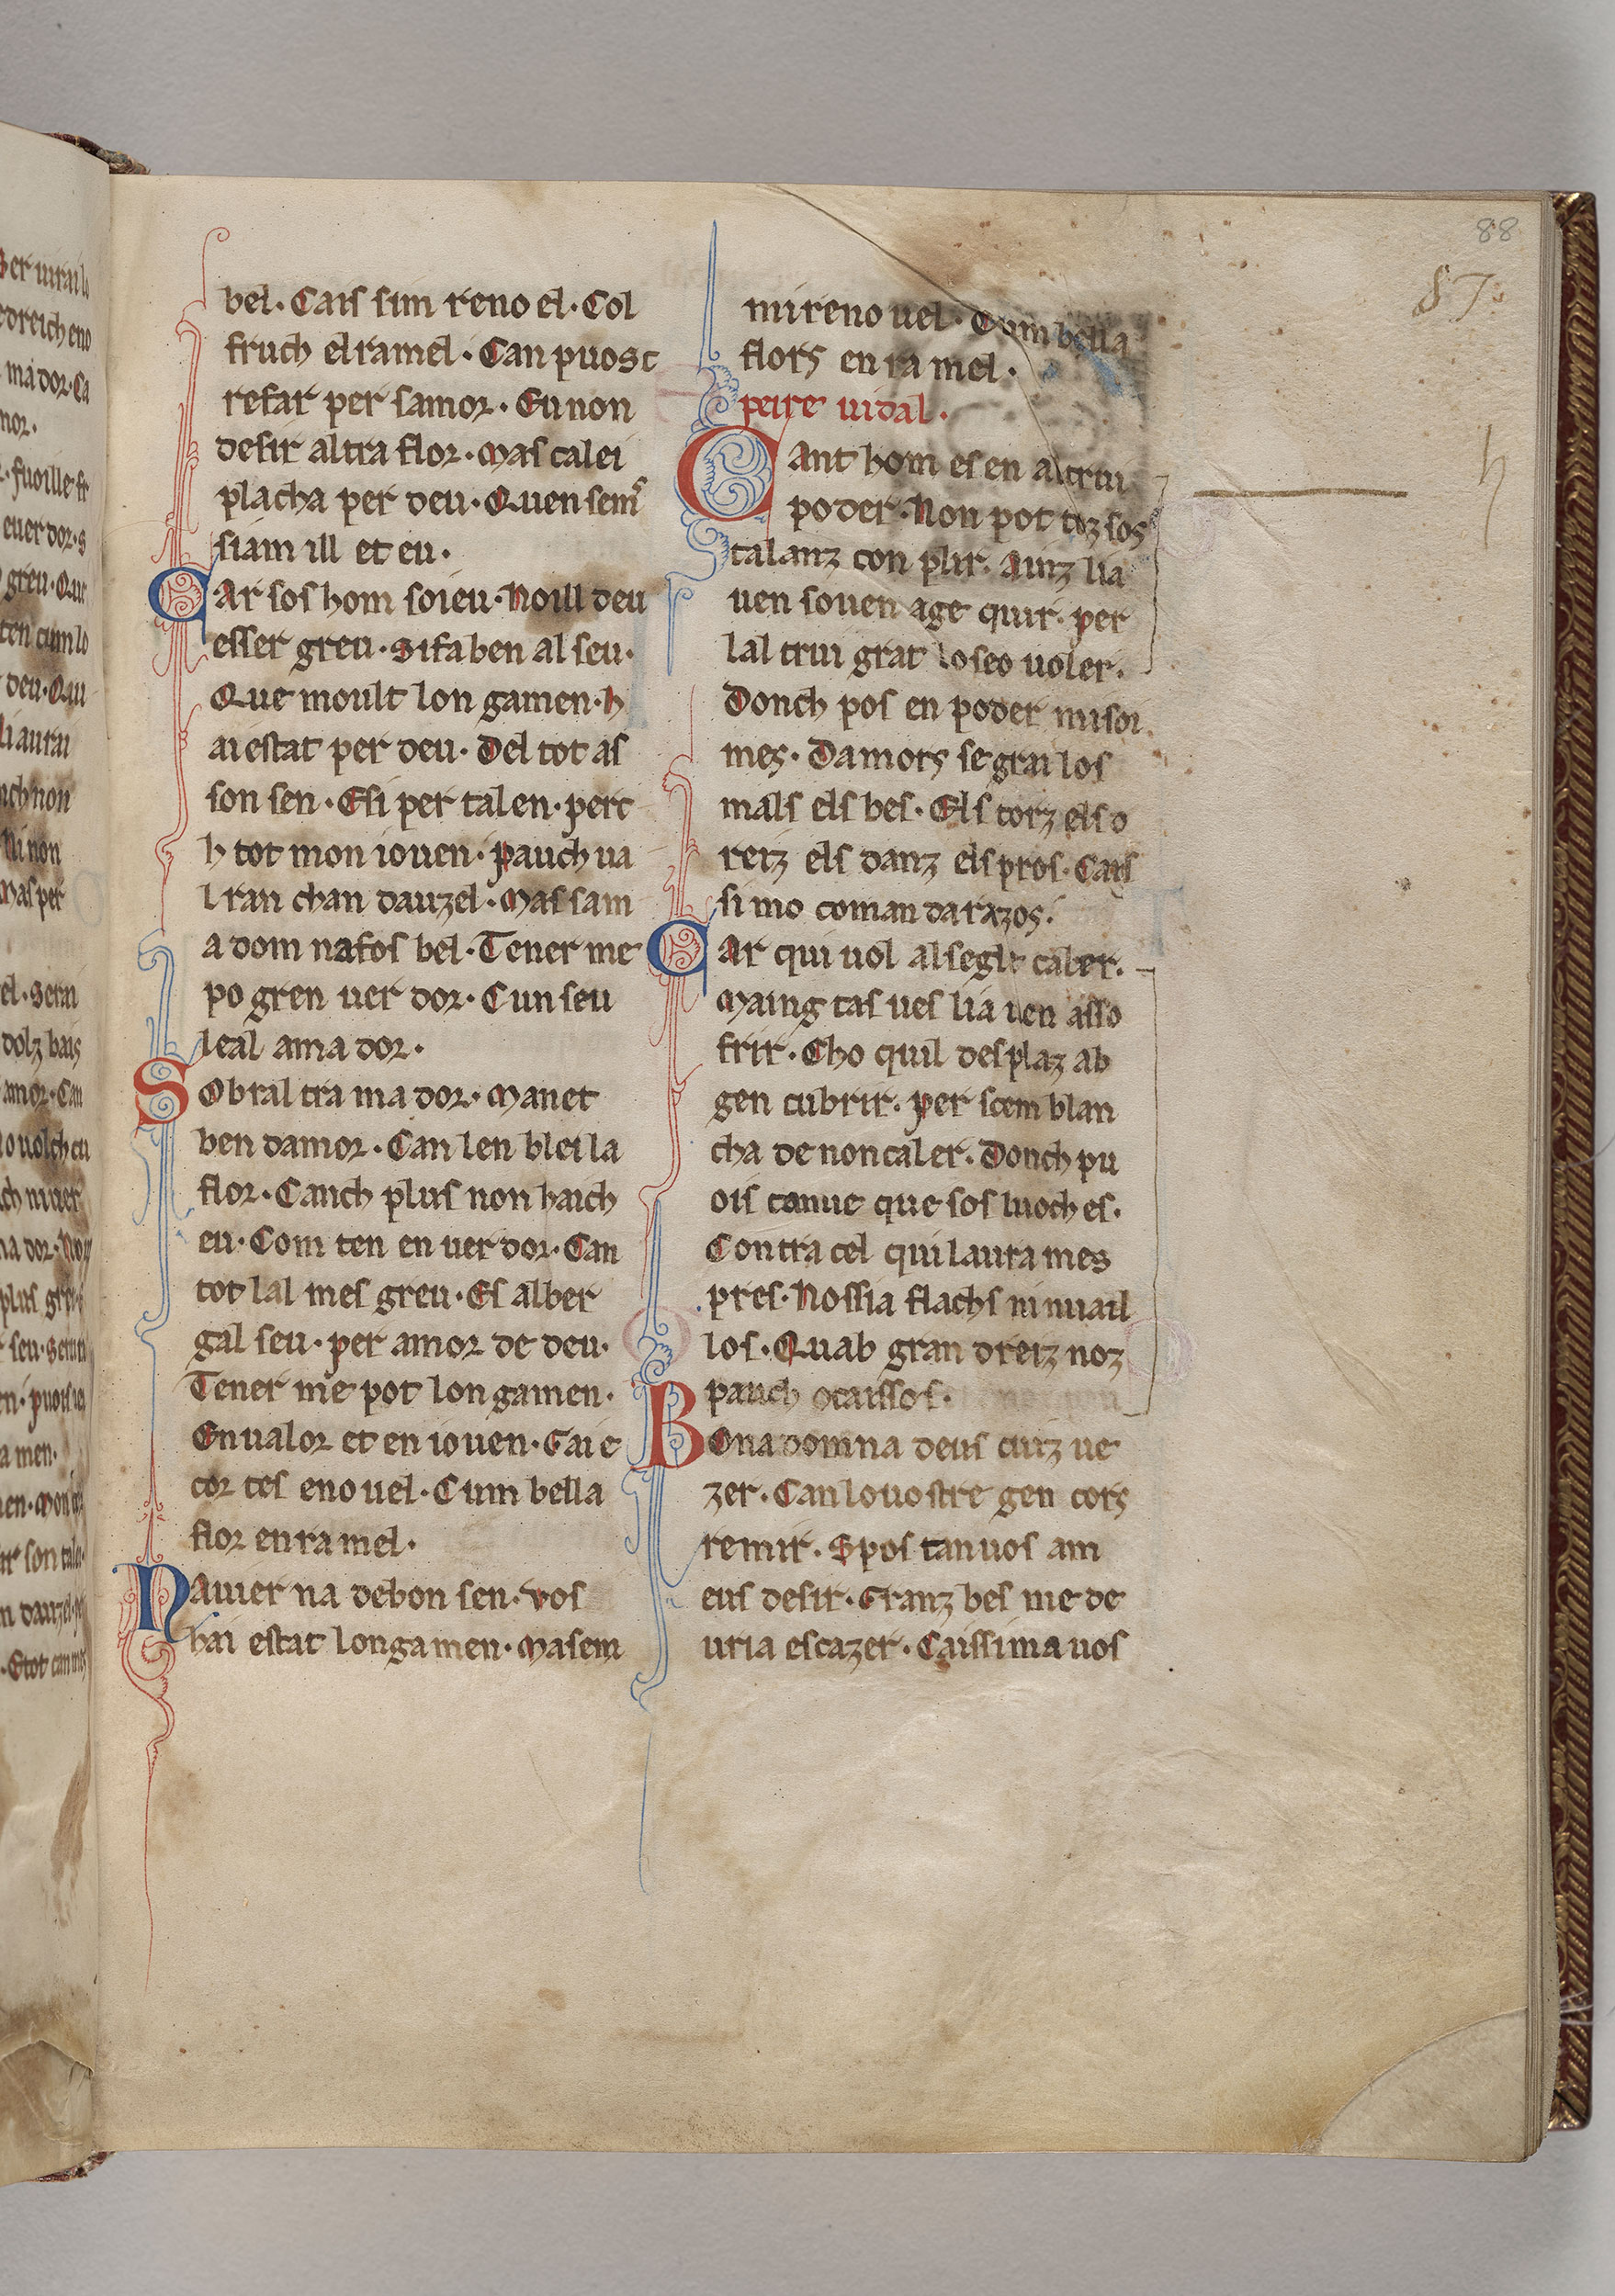 88
87.
bel. Cais sim reno el. Col
fruch el ramel. Can puosc
refar per samor. Eu non
desir altra flor. Mas ca lei
placha per deu. Quen sem
siam ill et eu.
CAr sos hom soi eu. Noill deu
esser greu. Si fa ben al seu.
Que moult lon gamen. h
ai estat per deu. Del tot as
son sen. Esi per talen. perc
h tot mon iouen. pauch ua
lran chan dauzel. Mas sam
a dom na fos bel. Tener me
po gren uer dor. C un seu
leal ama dor.
SObral tra ma dor. Manet
ben damor. Can len blei la
flor. Canch plus non haich
eu. Com ten en uer dor. Can
tot lal mes greu. Es alber
gal seu. per amor de deu.
Tener me pot lon gamen.
En ualor et en iouen. Gai e
cor tes enouel. Cum bella
flor en ra mel.
NAuier na debon sen. vos
hai estat longa men. Mas em
mi reno uel. Cum bella
flors en ra mel.
peire uidal.
CAnt hom es en altrui
poder. Non pot toz sos
talanz con plir. Ainz lia
uen souen age quir. per
lal trui grat lo seo uoler.
Donch pos en poder mi soi
mes. Damors se grai los
mals els bes. Els torz els d
reiz els danz els pros. Cais
si mo coman da razos.
CAr qui uol al segle caber.
Maing tas ues lia uen asso
frir. Cho quil des plaz ab
gen cubrir. per scem blan
cha de non caler. Donch pu
ois canue que sos luoch es.
Contra cel qui laura mes
pres. Nossia flachs ni nuail
los. Quab gran dreiz noz
pauch ocaissos.
BOna domna deus cuiz ue
zer. Can lo uostre gen cors
remir. Epos tan uos am
eus desir. Granz bes me de
uria escazer. Caissi ma uos